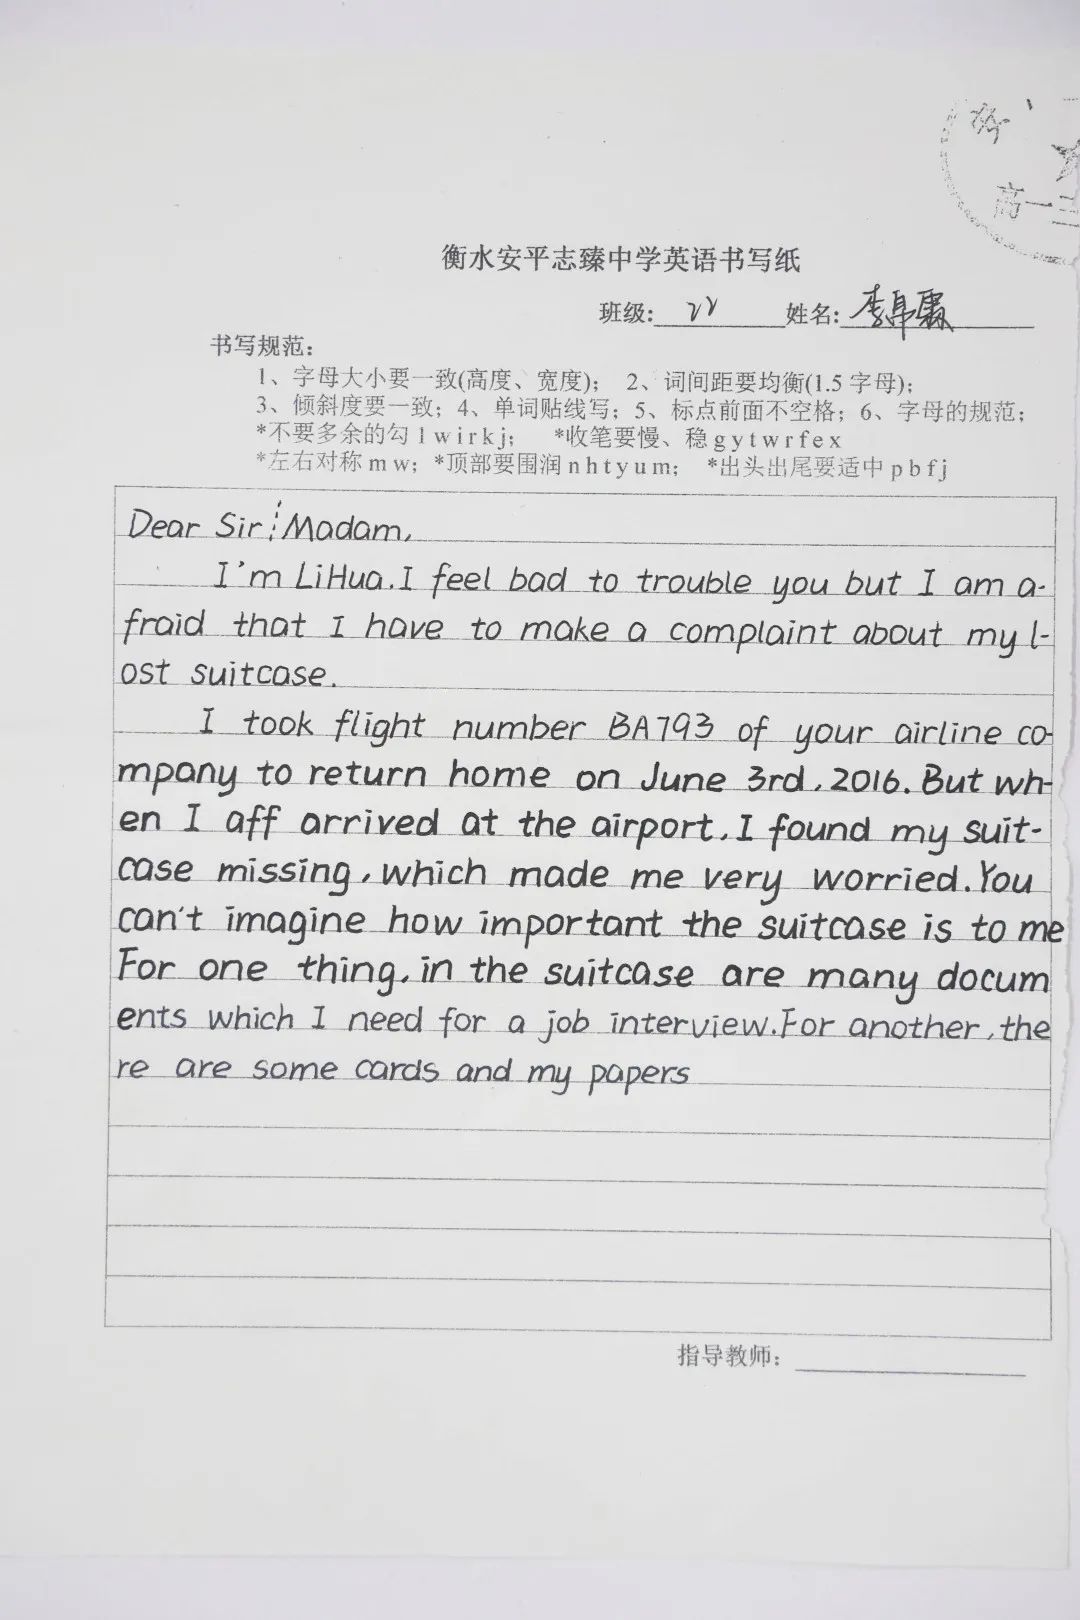 高一三
衡水安平志臻中学英语书写纸
班级: 22 姓名: 李
书写规范:
1、字母大小要一致(高度、宽度); 2、词间距要均衡(1.5 字母);
3、倾斜度要一致; 4、单词贴线写; 5、标点前面不空格; 6、字母的规范;
*不要多余的勾 l w i r k j; *收笔要慢、稳 g y t w r f e x
*左右对称 m w; *顶部要圆润 n h t y u m; *出头出尾要适中 p b f j
Dear Sir/Madam,
I'm LiHua. I feel bad to trouble you but I am a-
fraid that I have to make a complaint about my l-
ost suitcase.
I took flight number BA793 of your airline co-
mpany to return home on June 3rd, 2016. But wh-
en I aff arrived at the airport, I found my suit-
case missing, which made me very worried. You
can't imagine how important the suitcase is to me
For one thing, in the suitcase are many docum
ents which I need for a job interview. For another, the
re are some cards and my papers
指导教师: